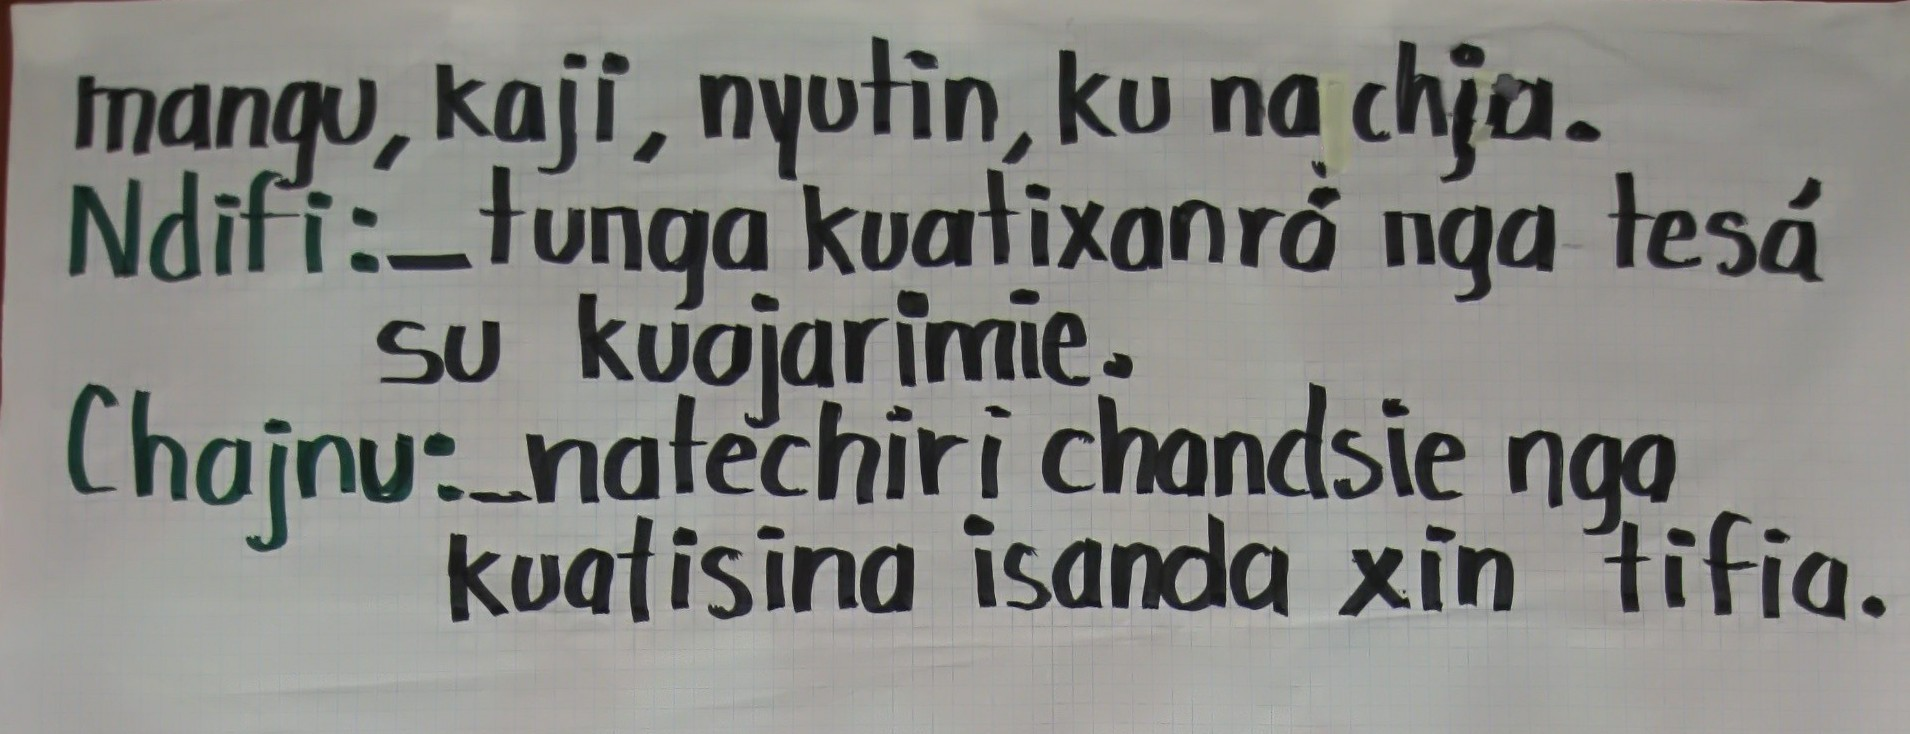 mangu, kaji, nyutin, ku na chja.
Ndifi:_ tunga kuatixanrá nga tesá
su kuajarimie.
Chajnu:_ natechiri chandsie nga
kuatisina isanda xin tifia.